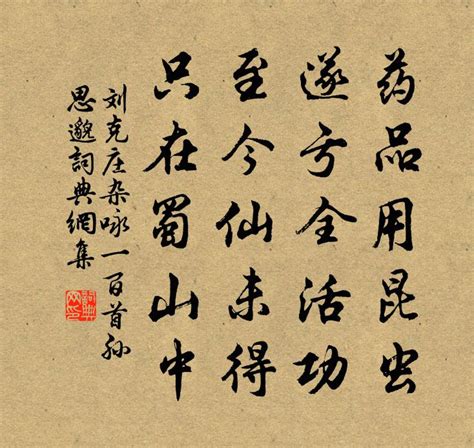 药品用昆虫
遂亏全活功
至今仙未得
只在蜀山中
刘克庄杂咏一百首孙
思邈词典網集